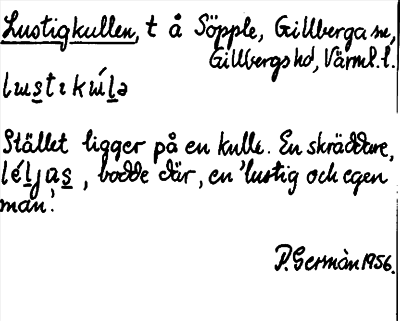 Lustigkullen, t å Söpple, Gillberga sn,
Gillbergs hd, Värml. l.
lustιkúlə
Stället ligger på en kulle. En skräddare,
léljas, bodde där, en 'lustig och egen
man'.
P. Germàn 1956.